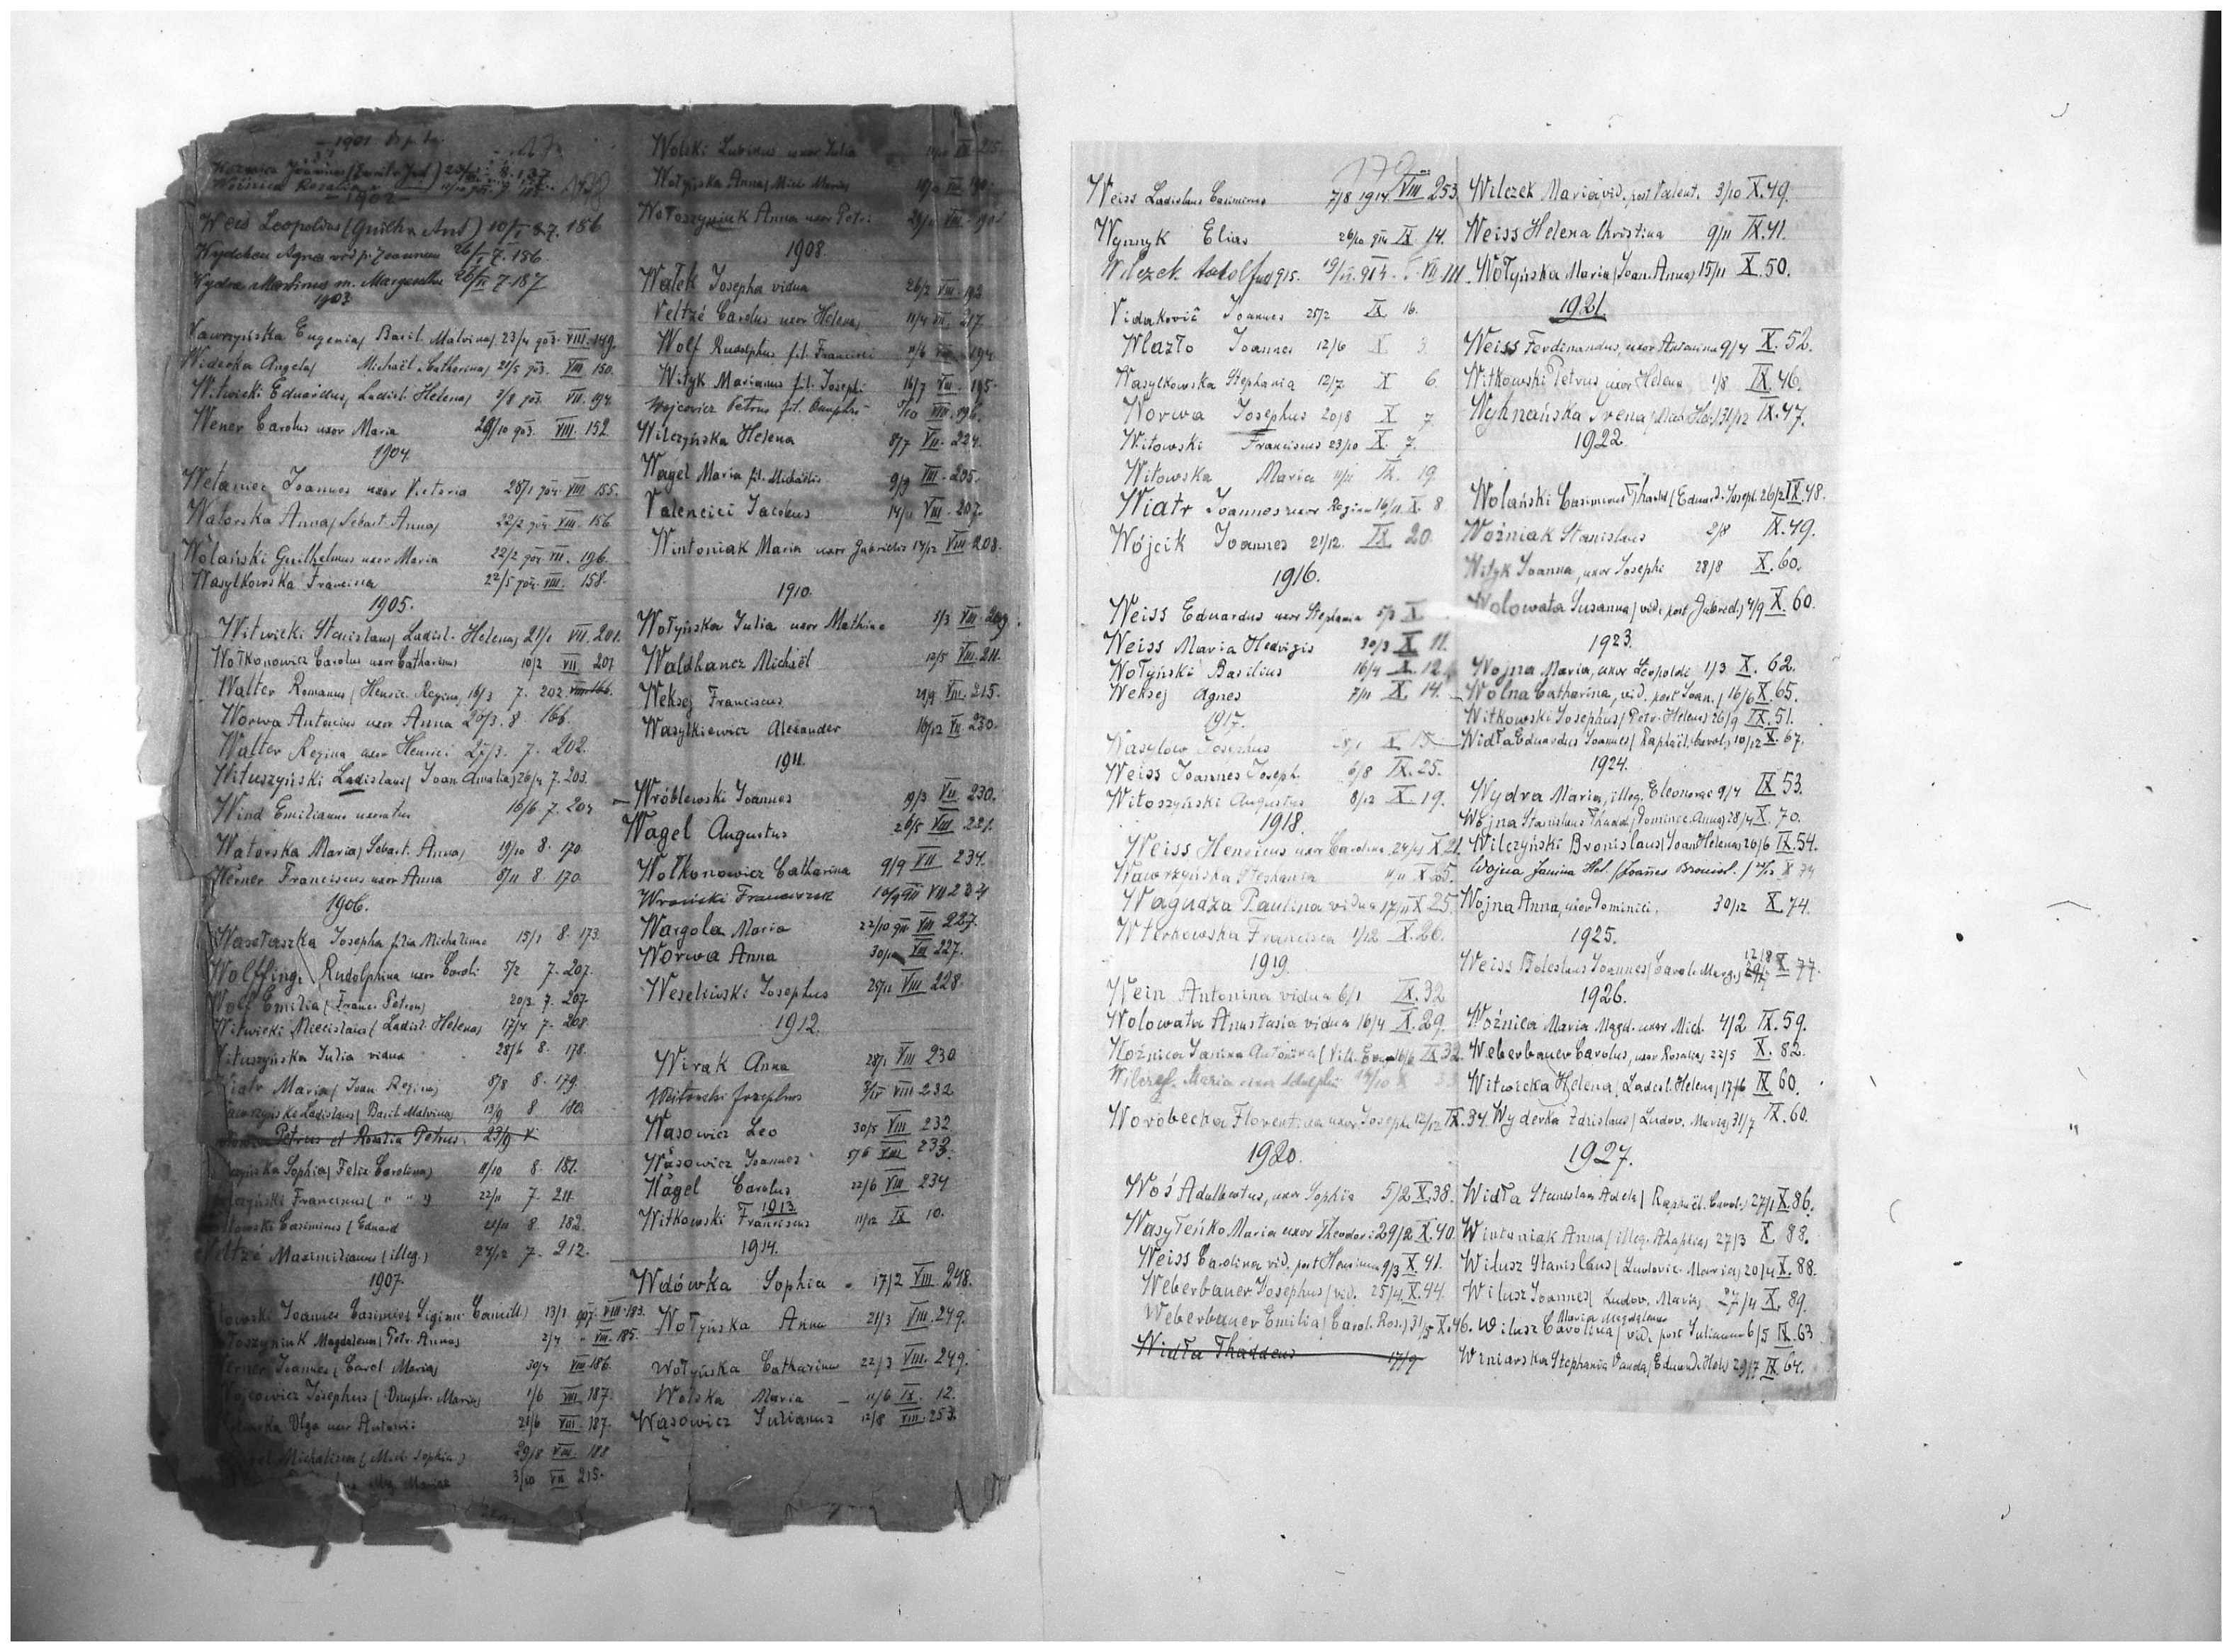 1901
Woźnica Rosalia
1902
Weis Leopoldus (Guilh. Ant) 10/I 8.7. 186
Wydchen Agna vid p. Joannem 26/I 7. 186.
Wydra Martinus m. Margaretha 26/II 7 187
1903
Wawrzyńska Eugenia/ Basil. Malvina/ 23/4 903. VIII. 149.
Widerka Angela/ Michaël. Catharina/ 21/5 903. VIII. 150.
Witwicki Eduardus, Ladisl. Helena/ 3/8 903. VII. 194.
Wener Carolus uxor Maria 28/10 903. VIII. 152.
1904.
Welaniec Joannes uxor Victoria 28/1 904. VIII. 155.
Watorska Anna/ Sebast. Anna/ 22/2 904 VIII. 156.
Wolański Guilhelmus uxor Maria 22/2 904 VII. 196.
Wasylkowska Francisca 22/5 904. VIII. 158.
1905.
Witwicki Stanislaus/ Ladisl. Helena/ 21/1 VII. 201.
Wołkonowicz Carolus uxor Catharina 10/2 VII 201
Walter Romanus/ Henric. Regina, 16/3 7. 202. VIII 166.
Worwa Antonius uxor Anna 20/3. 8 166.
Walter Regina uxor Henrici 27/3. 7. 202.
Wituszyński Ladislaus/ Joan Amalia/ 26/4 7. 203.
Wind Emilianus uxoratus 16/6 7. 204
Watorska Maria/ Sebast. Anna/ 19/10 8. 170
Werner Franciscus uxor Anna 8/11 8. 170.
1906.
Wasetaszka Josepha filia Michalinae 15/1 8. 173.
Wolffing. Rudolphina uxor Caroli 5/2 7. 207.
Wolf Emilia/ Franc. Petron/ 20/3. 7. 207
Witwicki Miecislaus/ Ladisl. Helena/ 17/4 7. 208.
Wituszyńska Julia vidua 28/6 8. 178.
Wiatr Maria/ Joan Regina/ 8/8 8. 179.
Ladislaus/ Basil Malvina/ 13/9 8 180.
Petrus et Rosalia Petrus. 23/9 X
Sophia/ Felix Carolina/ 11/10 8. 181.
Franciscus/ " " 22/11 7. 211.
Casimirus/ Eduard 21/11 8. 182.
Weltzé Maximilianus (illeg.) 24/12 7. 212.
1907.
Joannes Casimirus/ Sigism. Camill/ 13/1 907. VIII. 183.
Wołoszyniuk Magdalena/ Petr. Anna/ 2/4 " VIII. 185.
Werner Joannes/ Carol Maria/ 30/4 VIII. 186.
Wojcowicz Josephus/ Onuphr. Maria/ 1/6 VIII. 187.
Olga uxor Antoni 21/6 VIII. 187.
Michalina/ Mich. Sophia/ 29/8 VIII. 188
3/10 VII 215.
Wolski Lubinus uxor Julia VII. 215.
Wołyńska Anna/ Mich Maria/ VIII. 190.
Wołoszyniuk Anna uxor Petri VIII. 191
1908.
Wałek Josepha vidua 26/2 VIII. 192
Veltzé Carolus uxor Helena/ 11/4 VII. 217
Wolf Rudolphus fil. Francisci 11/6 VIII. 194
Wityk Marianus fil. Josephi 16/7 VIII. 195.
Wojcowicz Petrus fil. Onuphri 5/10 VIII. 196.
Wilczyńska Helena 8/7 VII. 224.
Wagel Maria fil. Michaëlis 9/9 VIII. 205.
Valencici Jacobus 14/11 VIII. 207.
Wintoniak Maria uxor Gabrielis 14/12 VIII. 208.
1910.
Wołyńska Julia uxor Mathiae 3/3 VIII. 209.
Waldhancz Michaël 12/5 VIII. 211.
Weksej Franciscus 29/9 VIII. 215.
Wasylkiewicz Alexander 16/12 VII. 230.
1911.
Wróblewski Joannes 19/3 VII 230.
Wagel Augustus 26/5 VIII 221.
Wołkonowicz Catharina 9/9 VII 234.
Wroński Franciszek 10/9 911 VII 234
Wargola Maria 22/10 911 VIII 227.
Worwa Anna 30/10 VIII 227.
Weseliwski Josephus 25/11 VIII 228.
1912.
Wirak Anna 28/1 VIII 230
Witowski Josephus 3/IV VIII 232
Wasowicz Leo 30/5 VIII 232
Wąsowicz Joannes 5/6 VIII 233.
Wagel Carolus 22/6 VIII 234
1913.
Witkowski Franciscus 11/12 IX 10.
1914.
Wdówka Sophia 17/2 VIII 248.
Wołyńska Anna 21/3 VIII 249.
Wołyńska Catharina 22/3 VIII. 249.
Wolska Maria 11/6 IX. 12.
Wąsowicz Julianus 12/8 VIII. 253.
179
Weiss Ladislaus Casimirus 7/8 1914 VIII 253.
Wynnyk Elias 26/10 914 IX 14.
Wilczek Adolf 915. 19/VI. 914. VII 111.
Vidakovič Joannes 25/2 IX 16.
Wlazło Joannes 12/6 X 3
Wasylkowska Stephania 12/7 X 6.
Worwa Josephus 20/8 X 7.
Witowski Franciscus 23/10 X. 7.
Witowska Maria 11/11 IX. 19.
Wiatr Joannes uxor Regina 16/11 X. 8
Wójcik Joannes 21/12. IX 20.
1916.
Weiss Eduardus uxor Stephania 5/3 X
Weiss Maria Hedvigis 30/3 X 11.
Wołyński Basilius 16/4 X. 12.
Weksej Agnes 7/11 X. 14.
1917.
Wasylow Josephus X. 15
Weiss Joannes Joseph. 6/8 IX. 25.
Witoszyński Augustus 8/12 X. 19.
1918.
Weiss Henricus uxor Carolina 24/4 X 21.
Wawrzyńska Stephania 11/11 X 25.
Wagudza Paulina vidua 17/11 X 25.
Wterkowska Francisca 1/12 X. 26.
1919.
Wein Antonina vidua 6/1 IX. 32
Wolowata Anastasia vidua 16/4 X. 29.
Woźnica Janina Antonina 16/6 IX 32.
Wilczek Maria uxor Adolphi
Worobecka Florentina uxor Joseph. 12/12 IX. 34.
1920.
Woś Adalbertus, uxor Sophia 5/2 X. 38.
Wasyłeńko Maria uxor Theodori 29/2 X. 40.
Weiss Carolina vid. post Henricum 9/3 X. 41.
Weberbauer Josephus/ vid. 25/4. X. 44.
Weberbauer Emilia/ Carol. Ros./ 31/5 X. 46.
Widła Thaddeus 17/9
Wilczek Maria vid. post Valent. 3/10 X. 49.
Weiss Helena Christina 9/11 IX. 41.
Wołyńska Maria/ Joan. Anna/ 15/11 X. 50.
1921.
Weiss Ferdinandus, uxor Antonina 9/4 X. 52.
Witkowski Petrus, uxor Helena 1/8 IX. 46.
Wykneańska Irena/ Mich. Hel./ 31/12 IX. 47.
1922
Wolański Casimirus Thadd/ Eduard. Joseph. 26/2 IX. 48.
Woźniak Stanislaus 2/8 IX. 49.
Wityk Joanna, uxor Josephi 28/8 X. 60.
Wolowata Susanna/ vid. post Gabriel./ 4/9 X. 60.
1923.
Wojna Maria, uxor Leopoldi 1/3 X. 62.
Wolna Catharina, vid. post Joan./ 16/6 X. 65.
Witkowski Josephus/ Petr. Helena/ 26/9 IX. 51.
Widła Eduardus Joannes/ Raphaël. Carol./ 10/12 X. 67.
1924.
Wydra Maria, illeg. Eleonorae 9/4 IX 53.
Wojna Stanislaus Thadd./ Dominic. Anna/ 28/4 X. 70.
Wilczyński Bronislaus/ Joan Helena/ 26/6 IX. 54.
Wojna Janina Hel. (Joannes Bronisl.) X 74
Wojna Anna, uxor Dominici. 30/12 X. 74.
1925.
12/8
Weiss Boleslaus Joannes/ Carol. Marg./ 29/7 X 77.
1926.
Woźnica Maria Magd. uxor Mich. 4/2 IX. 59.
Weberbauer Carolus, uxor Rosalia/ 22/5 X. 82.
Witwicka Helena/ Ladisl. Helena/ 17/6 IX 60.
Wyderka Zdzislaus/ Ludov. Maria/ 31/7 IX. 60.
1927.
Widła Stanislaa Adela/ Raphaël. Carol./ 27/1 X. 86.
Wintoniak Anna/ illeg. Agaphia/ 27/3 X. 88.
Wilusz Stanislaus/ Ludovic. Maria/ 20/4 X. 88.
Wilusz Joannes/ Ludov. Maria/ 27/4 X. 89.
Maria Magdalena
Wilusz Carolina/ vid. post Julianum 6/5 IX. 63
Winiarska Stephania Vanda/ Eduard. Hel./ 29/7 IX. 64.